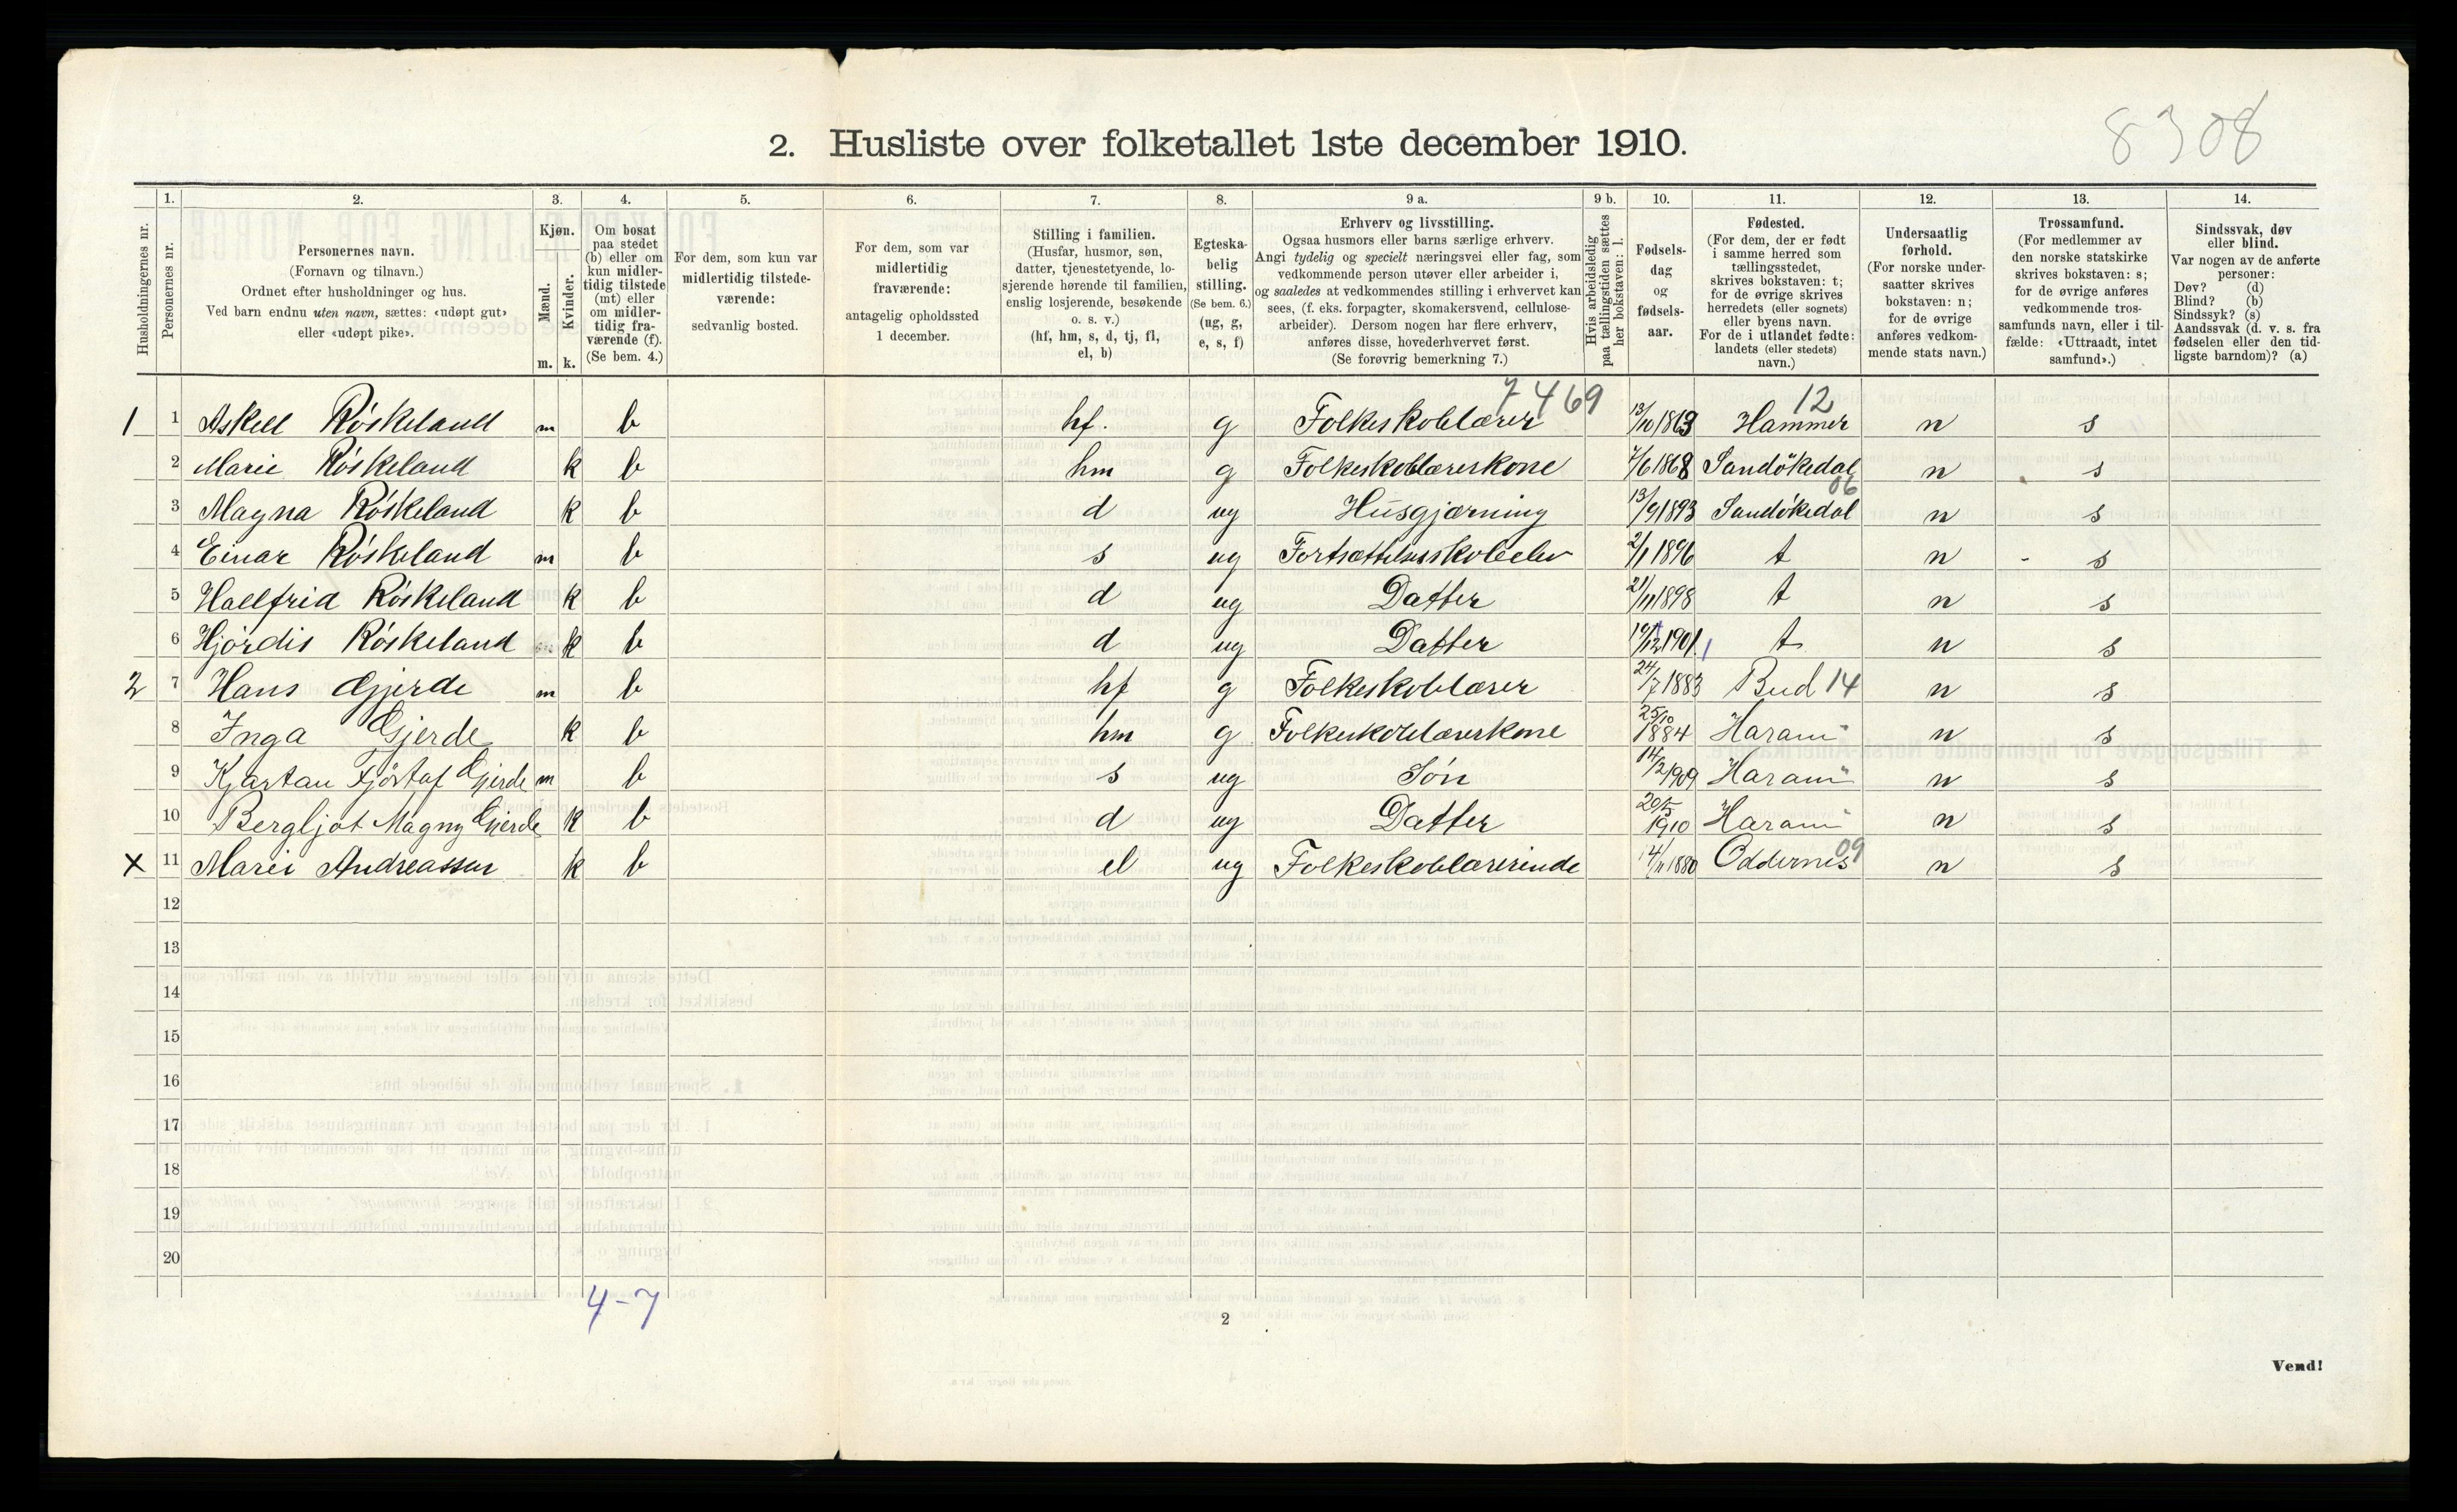 8308
2. Husliste over folketallet 1ste december 1910.
Husholdningernes nr.
1. Personernes nr.
2. Personernes navn. (Fornavn og tilnavn.) Ordnet efter husholdninger og hus. Ved barn endnu uten navn, sættes: «udøpt gut» eller «udøpt pike».
3. Kjøn. Mænd. m. Kvinder. k.
4. Om bosat paa stedet (b) eller om kun midlertidig tilstede (mt) eller om midlertidig fraværende (f). (Se bem. 4.)
5. For dem, som kun var midlertidig tilstedeværende: sedvanlig bosted.
6. For dem, som var midlertidig fraværende: antagelig opholdssted 1 december.
7. Stilling i familien. (Husfar, husmor, søn, datter, tjenestetyende, losjerende hørende til familien, enslig losjerende, besøkende o. s. v.) (hf, hm, s, d, tj, fl, el, b)
8. Egteskabelig stilling. (Se bem. 6.) (ug, g, e, s, f)
9 a. Erhverv og livsstilling. Ogsaa husmors eller barns særlige erhverv. Angi tydelig og specielt næringsvei eller fag, som vedkommende person utøver eller arbeider i, og saaledes at vedkommendes stilling i erhvervet kan sees, (f. eks. forpagter, skomakersvend, cellulosearbeider). Dersom nogen har flere erhverv, anføres disse, hovederhvervet først. (Se forøvrig bemerkning 7.)
9 b. Hvis arbeidsledig paa tællingstiden sættes her bokstaven: l.
10. Fødselsdag og fødselsaar.
11. Fødested. (For dem, der er født i samme herred som tællingsstedet, skrives bokstaven: t; for de øvrige skrives herredets (eller sognets) eller byens navn. For de i utlandet fødte: landets (eller stedets) navn.)
12. Undersaatlig forhold. (For norske undersaatter skrives bokstaven: n; for de øvrige anføres vedkommende stats navn.)
13. Trossamfund. (For medlemmer av den norske statskirke skrives bokstaven: s; for de øvrige anføres vedkommende trossamfunds navn, eller i tilfælde: «Uttraadt, intet samfund».)
14. Sindssvak, døv eller blind. Var nogen av de anførte personer: Døv? (d) Blind? (b) Sindssyk? (s) Aandssvak (d. v. s. fra fødselen eller den tidligste barndom)? (a)
7469 12
1 1 Askell Røskeland m b hf. g Folkeskolelærer 13/10 1863 Hammer n s
2 Marie Røskeland k b hm g Folkeskolelærerskone 7/6 1868 Sandökedal n s
06
3 Magna Røskeland k b d ug Husgjærning 13/9 1893 Sandökedal n s
4 Einar Røskeland m b s ug Fortsættelsesskoleelev 2/1 1896 t n - s
5 Hallfrid Røskeland k b d ug Datter 21/11 1898 t n s
6 Hjördis Røskeland k b d ug Datter 19/12 1901 t n s
2 7 Hans Gjerde m b hf g Folkeskolelærer 24/7 1883 Bud 14 n s
8 Inga Gjerde k b hm g Folkeskolelærerskone 25/10 1884 Haram n s
9 Kjartan Fjörtof Gjerde m b s ug Sön 14/2 1909 Haram n s
10 Bergljot Magny Gjerde k b d ug Datter 20/5 1910 Haram n s
09
X 11 Marie Andreassen k b el ug Folkeskolelærerinde 14/11 1880 Oddernes n s
12
13
14
15
16
17
18
19
20
4-7
2
Vend!